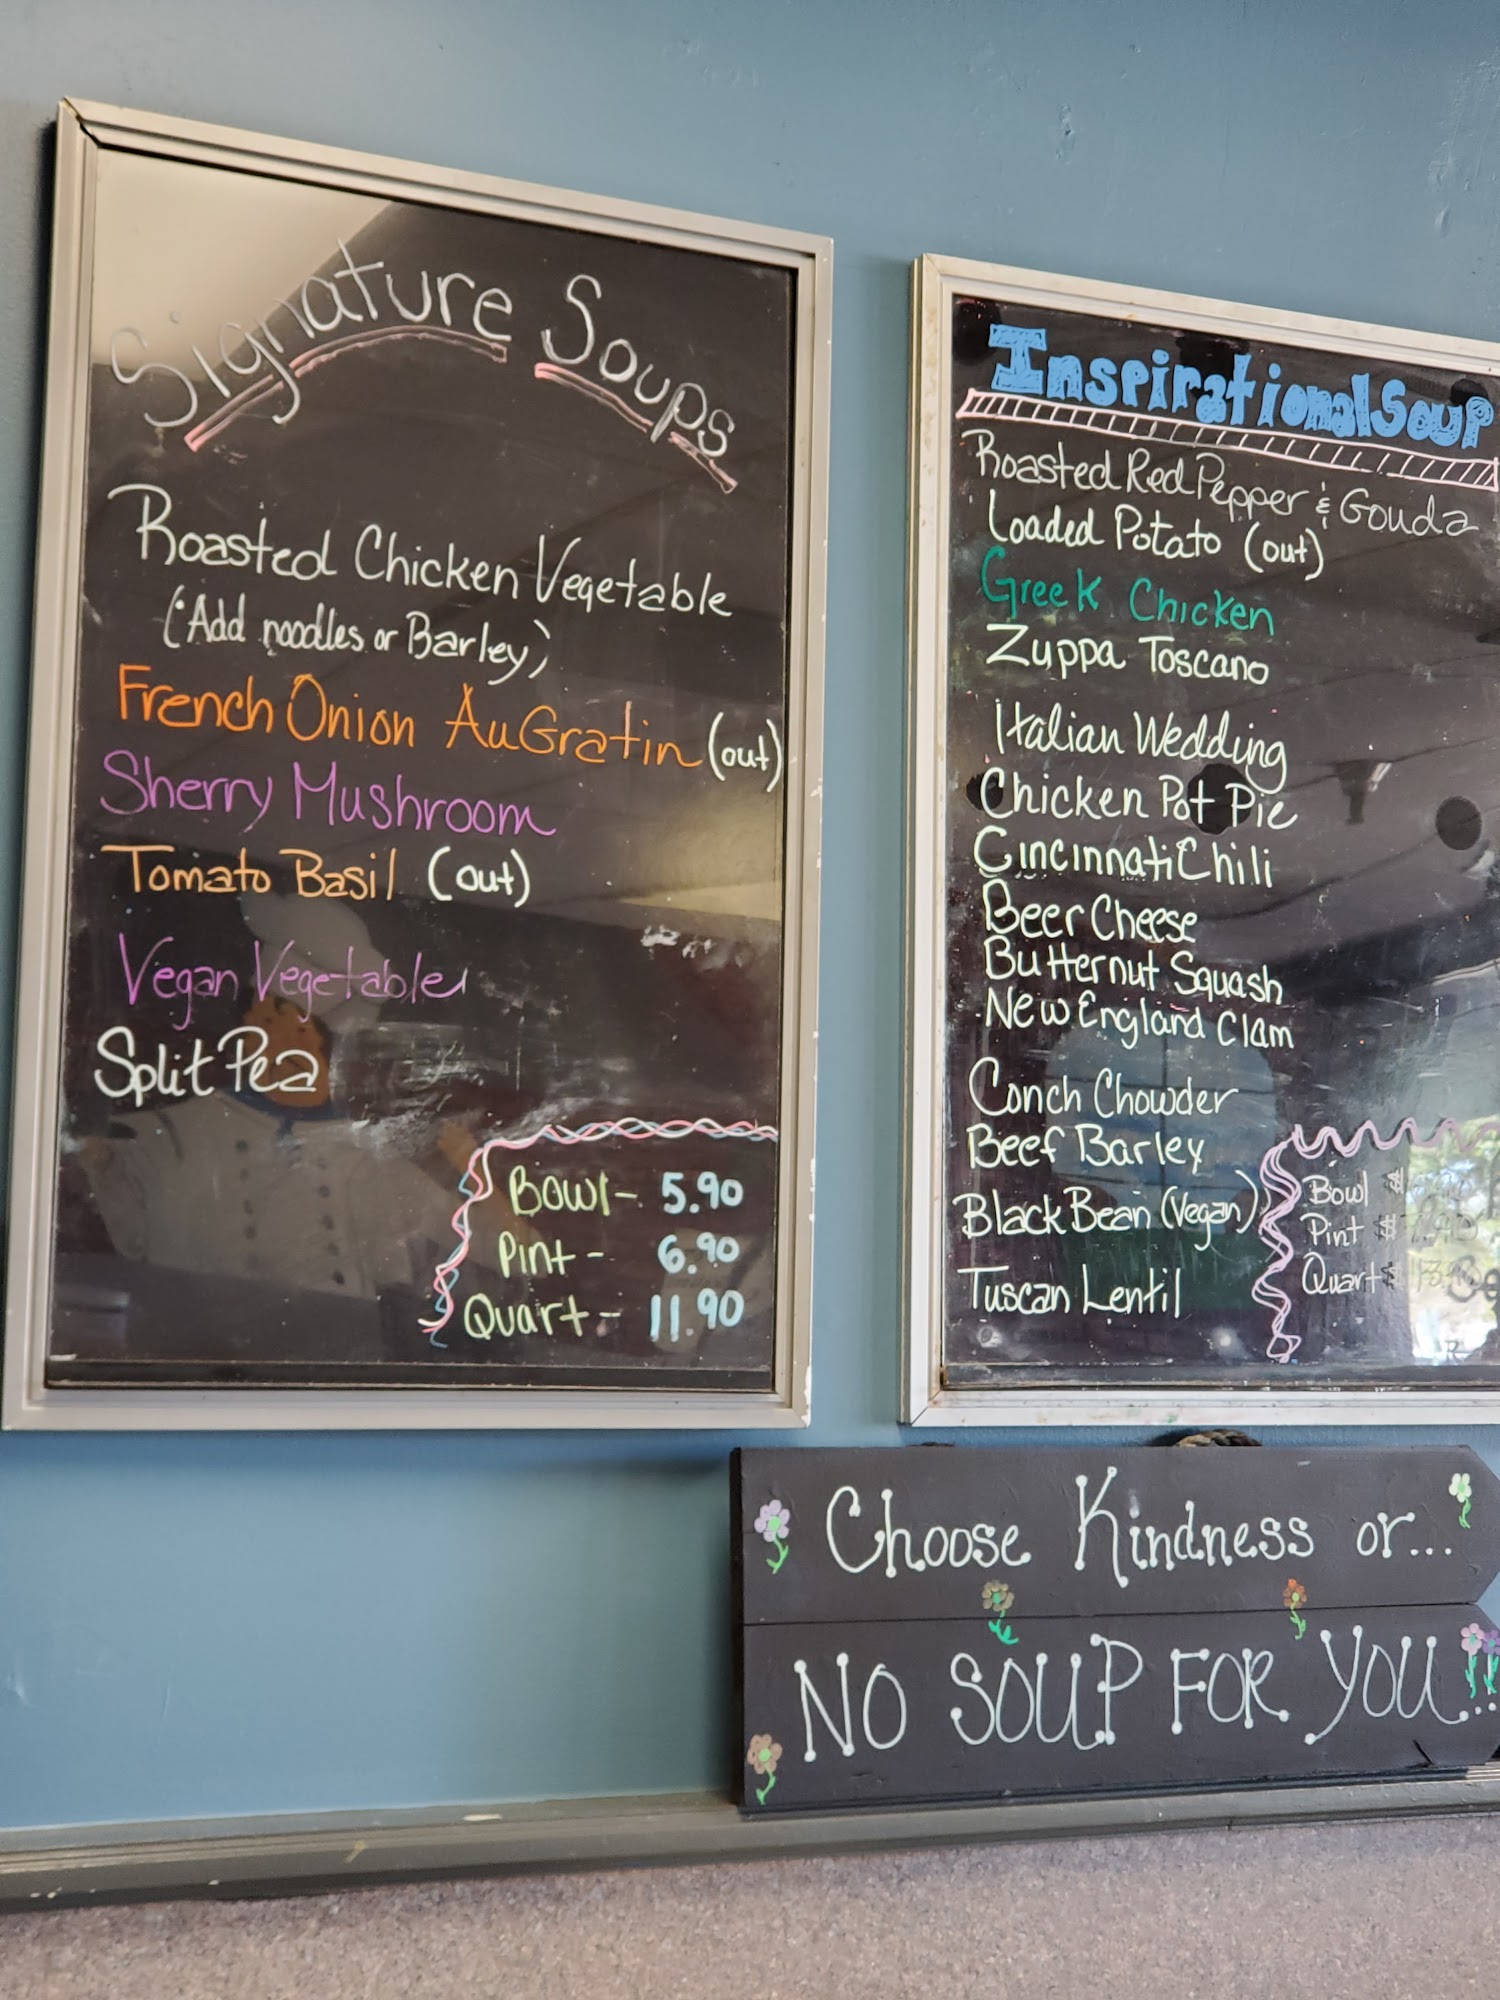 Signature Soups
Roasted Chicken Vegetable
(Add noodles or Barley)
French Onion AuGratin (out)
Sherry Mushroom
Tomato Basil (out)
Vegan Vegetable
Split Pea
Bowl - 5.90
Pint - 6.90
Quart - 11.90
Inspirational Soup
Roasted Red Pepper & Gouda
Loaded Potato (out)
Greek Chicken
Zuppa Toscano
Italian Wedding
Chicken Pot Pie
Cincinnati Chili
Beer Cheese
Butternut Squash
New England Clam
Conch Chowder
Beef Barley
Black Bean (Vegan)
Tuscan Lentil
Bowl
Pint
Quart
Choose Kindness or...
NO SOUP FOR YOU!!